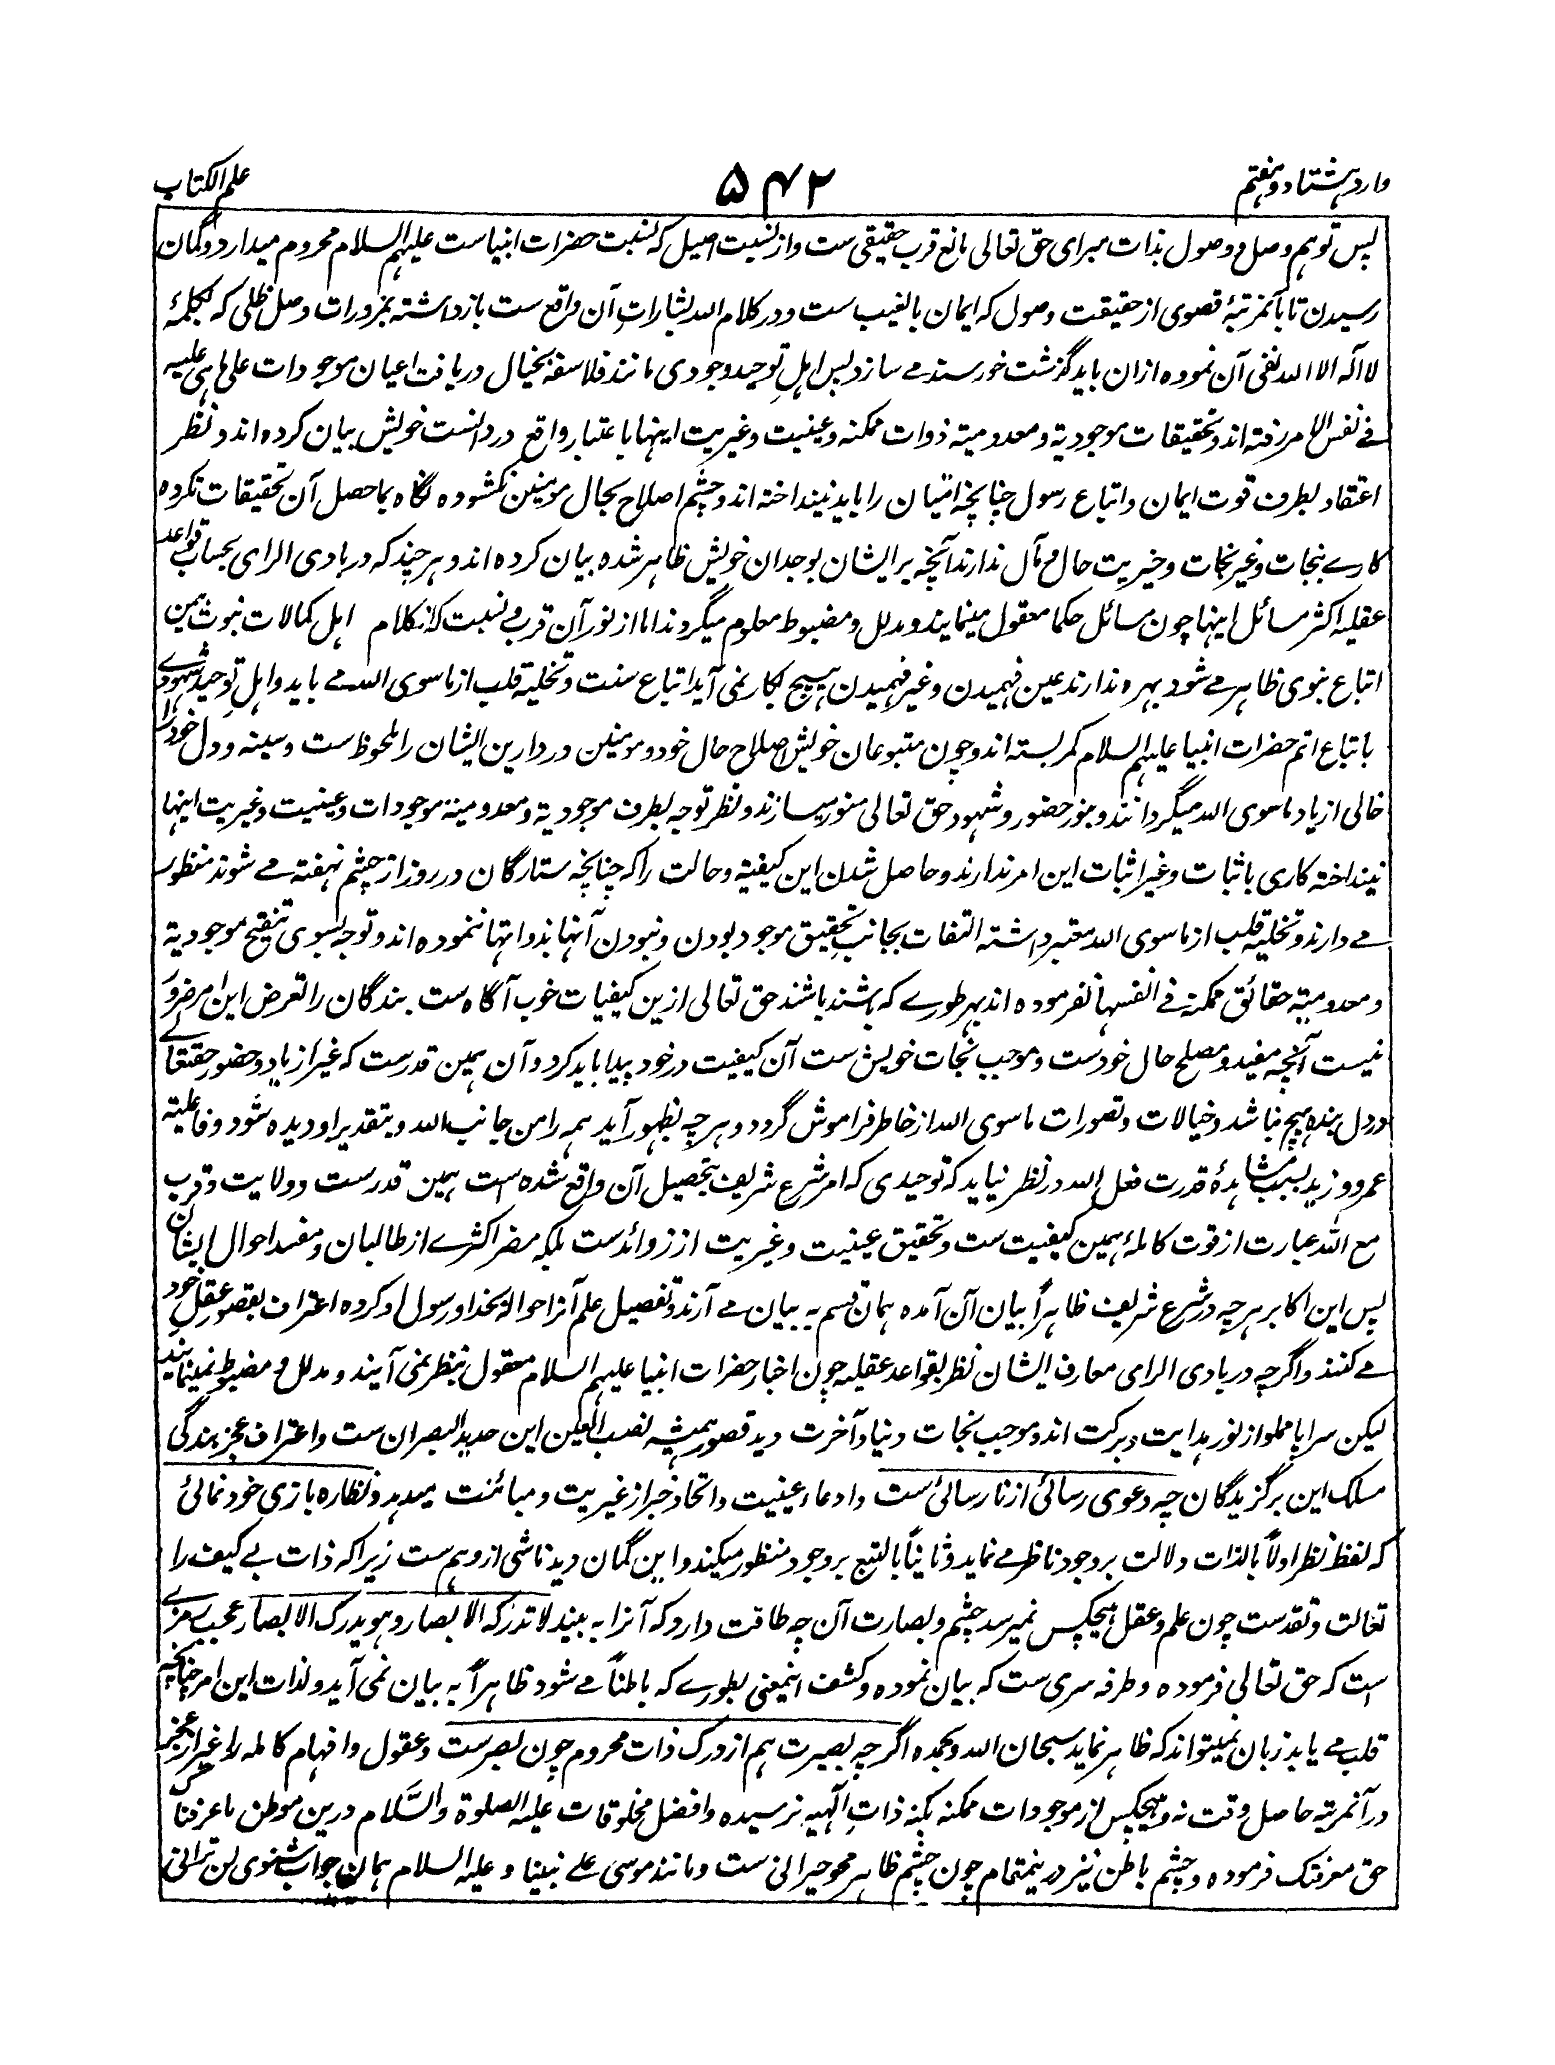 وارد ہشتاد و ہفتم
۵۴۲
علم الکتاب
پس توہم وصل و وصول بذات مبرای حق تعالی مانع قرب حقیقی ست و از نسبت اصیل کہ نسبت حضرات انبیاست علیہم السلام محروم میدارد و گمان
رسیدن تا بآنمرتبۂ قصوی از حقیقت وصول کہ ایمان بالغیب ست و در کلام اللہ بشارات آن واقع ست باز داشتہ بمزورات وصل ظلی کہ بکلمۂ
لا الہ الا اللہ نفی آن نمودہ ازان باید گزشت خورسند مے سازد پس اہلِ توحید وجودی مانند فلاسفہ بخیال دریافت اعیان موجودات علی ما ہی علیہ
فے نفس الامر رفتہ اند و تحقیقات موجودیۃ و معدومیۃ ذوات ممکنہ و عینیت و غیریت اینہا باعتبار واقع در دانست خویش بیان کردہ اند و نظر
اعتقاد بطرف قوت ایمان و اتباع رسول چنانچہ امتیان را باید نینداختہ اند و چشم اصلاح بحال مومنین نکشودہ نگاہ بماحصل آن تحقیقات نکردہ
کارے بنجات و غیر نجات و خیریت حال و مآل ندارند آنچہ بر ایشان بوجدان خویش ظاہر شدہ بیان کردہ اند و ہر چند کہ در بادی الرای بحساب قواعد
عقلیہ اکثر مسائل اینہا چون مسائل حکما معقول مینمایند و مدلل و مضبوط معلوم میگردند اما از نور آن قرب و نسبت کہ از کلام اہل کمالات نبوت بیمن
اتباع نبوی ظاہر مے شود بہرہ ندارند عین فہمیدن و غیر فہمیدن ہیچ بکار نمی آید اتباع سنت و تخلیۂ قلب از ماسوی اللہ مے باید و اہلِ توحید شہودے
باتباع اتم حضرات انبیا علیہم السلام کمر بستہ اند و چون متبوعان خویش اصلاح حال خود و مومنین در دارین ایشان را ملحوظ ست و سینہ و دل خود را
خالی از یاد ماسوی اللہ میگردانند و بنور حضور و شہود حق تعالی منور میسازند و نظر توجہ بطرف موجودیۃ و معدومیۃ موجودات و عینیت و غیریت اینہا
نینداختہ کاری باثبات و غیر اثبات این امر ندارند و حاصل شدن این کیفیۃ و حالت را کہ چنانچہ ستارگان در روز از چشم نہفتہ مے شوند منظور
مے دارند و تخلیۂ قلب از ماسوی اللہ معتبر داشتہ التفات بجانب تحقیق موجود بودن و نبودن آنہا بذواتہا ننمودہ اند و توجہ بسوی تنقیح موجودیۃ
و معدومیۃ حقائق ممکنہ فے انفسہا نفرمودہ اند بہر طورے کہ باشند باشند حق تعالی ازین کیفیات خوب آگاہ ست بندگان را تعرض این امر ضرور
نیست آنچہ مفید و مصلح حال خودست و موجب نجات خویش ست آن کیفیت در خود پیدا باید کرد و آن ہمین قدرست کہ غیر از یاد و حضور حقتعالے
در دل بندہ ہیچ نباشد و خیالات و تصورات ماسوی اللہ از خاطر فراموش گردد و ہر چہ بظہور آید ہمہ را من جانب اللہ و بتقدیر او دیدہ شود و فاعلیۃ
عمرو و زید بسبب مشاہدۂ قدرت فعل اللہ در نظر نیاید کہ توحیدی کہ امر شرع شریف بتحصیل آن واقع شدہ است ہمین قدرست و ولایت و قرب
مع اللہ عبارت از قوت کاملۂ ہمین کیفیت ست و تحقیق عینیت و غیریت از زوائدست بلکہ مضر اکثرے از طالبان و مفسد احوال ایشان
پس این اکابر ہر چہ در شرع شریف ظاہراً بیان آن آمدہ ہمان قسم بہ بیان مے آرند و تفصیل علم آنرا حوالۂ بخدا و رسول او کردہ اعتراف بقصور عقل خود
مے کنند و اگرچہ در بادی الرای معارف ایشان نظر بقواعد عقلیہ چون اخبار حضرات انبیا علیہم السلام معقول بنظر نمی آیند و مدلل و مضبوط نمینمایند
لیکن سراپا مملو از نور ہدایت و برکت اند و موجب نجات دنیا و آخرت دید قصور ہمیشہ نصب العین این حدید البصران ست و اعتراف عجز بندگی
مسلک این برگزیدگان چہ دعوی رسائی از نارسائی ست و ادعاء عینیت و اتحاد خبر از غیریت و مبائنت میدہد و نظارہ بازی خود نمائی
کہ لفظ نظر اولاً بالذات دلالت بر وجود ناظر مے نماید و ثانیاً بالتبع بر وجود منظور میکند و این گمان دید ناشی از وہم ست زیرا کہ ذات بے کیف را
تعالت و تقدست چون علم و عقل ہیچکس نمیرسد چشم و بصارت آن چہ طاقت دارد کہ آنرا بہ بیند لا تدرکہ الابصار و ہو یدرک الابصار عجب رمزے
است کہ حق تعالی فرمودہ و طرفہ سری ست کہ بیان نمودہ و کشف اینمعنی بطورے کہ باطناً مے شود ظاہراً بہ بیان نمی آید و لذات این امر چنانچہ
قلب مے یابد زبان نمیتواند کہ ظاہر نماید سبحان اللہ و بحمدہ اگرچہ بصیرت ہم از درک ذات محروم چون بصرست و عقول و افہام کاملہ را غیر از عجز
در آنمرتبہ حاصل وقت نہ و ہیچکس از موجودات ممکنہ بکنہ ذاتِ الٰہیہ نرسیدہ و افضل مخلوقات علیہ الصلوۃ والسَّلام درین موطن ما عرفناک
حق معرفتک فرمودہ و چشم باطن نیز درینمقام چون چشم ظاہر محو حیرانی ست و مانند موسی علے نبینا و علیہ السلام ہمان جواب شنوی لن ترانی